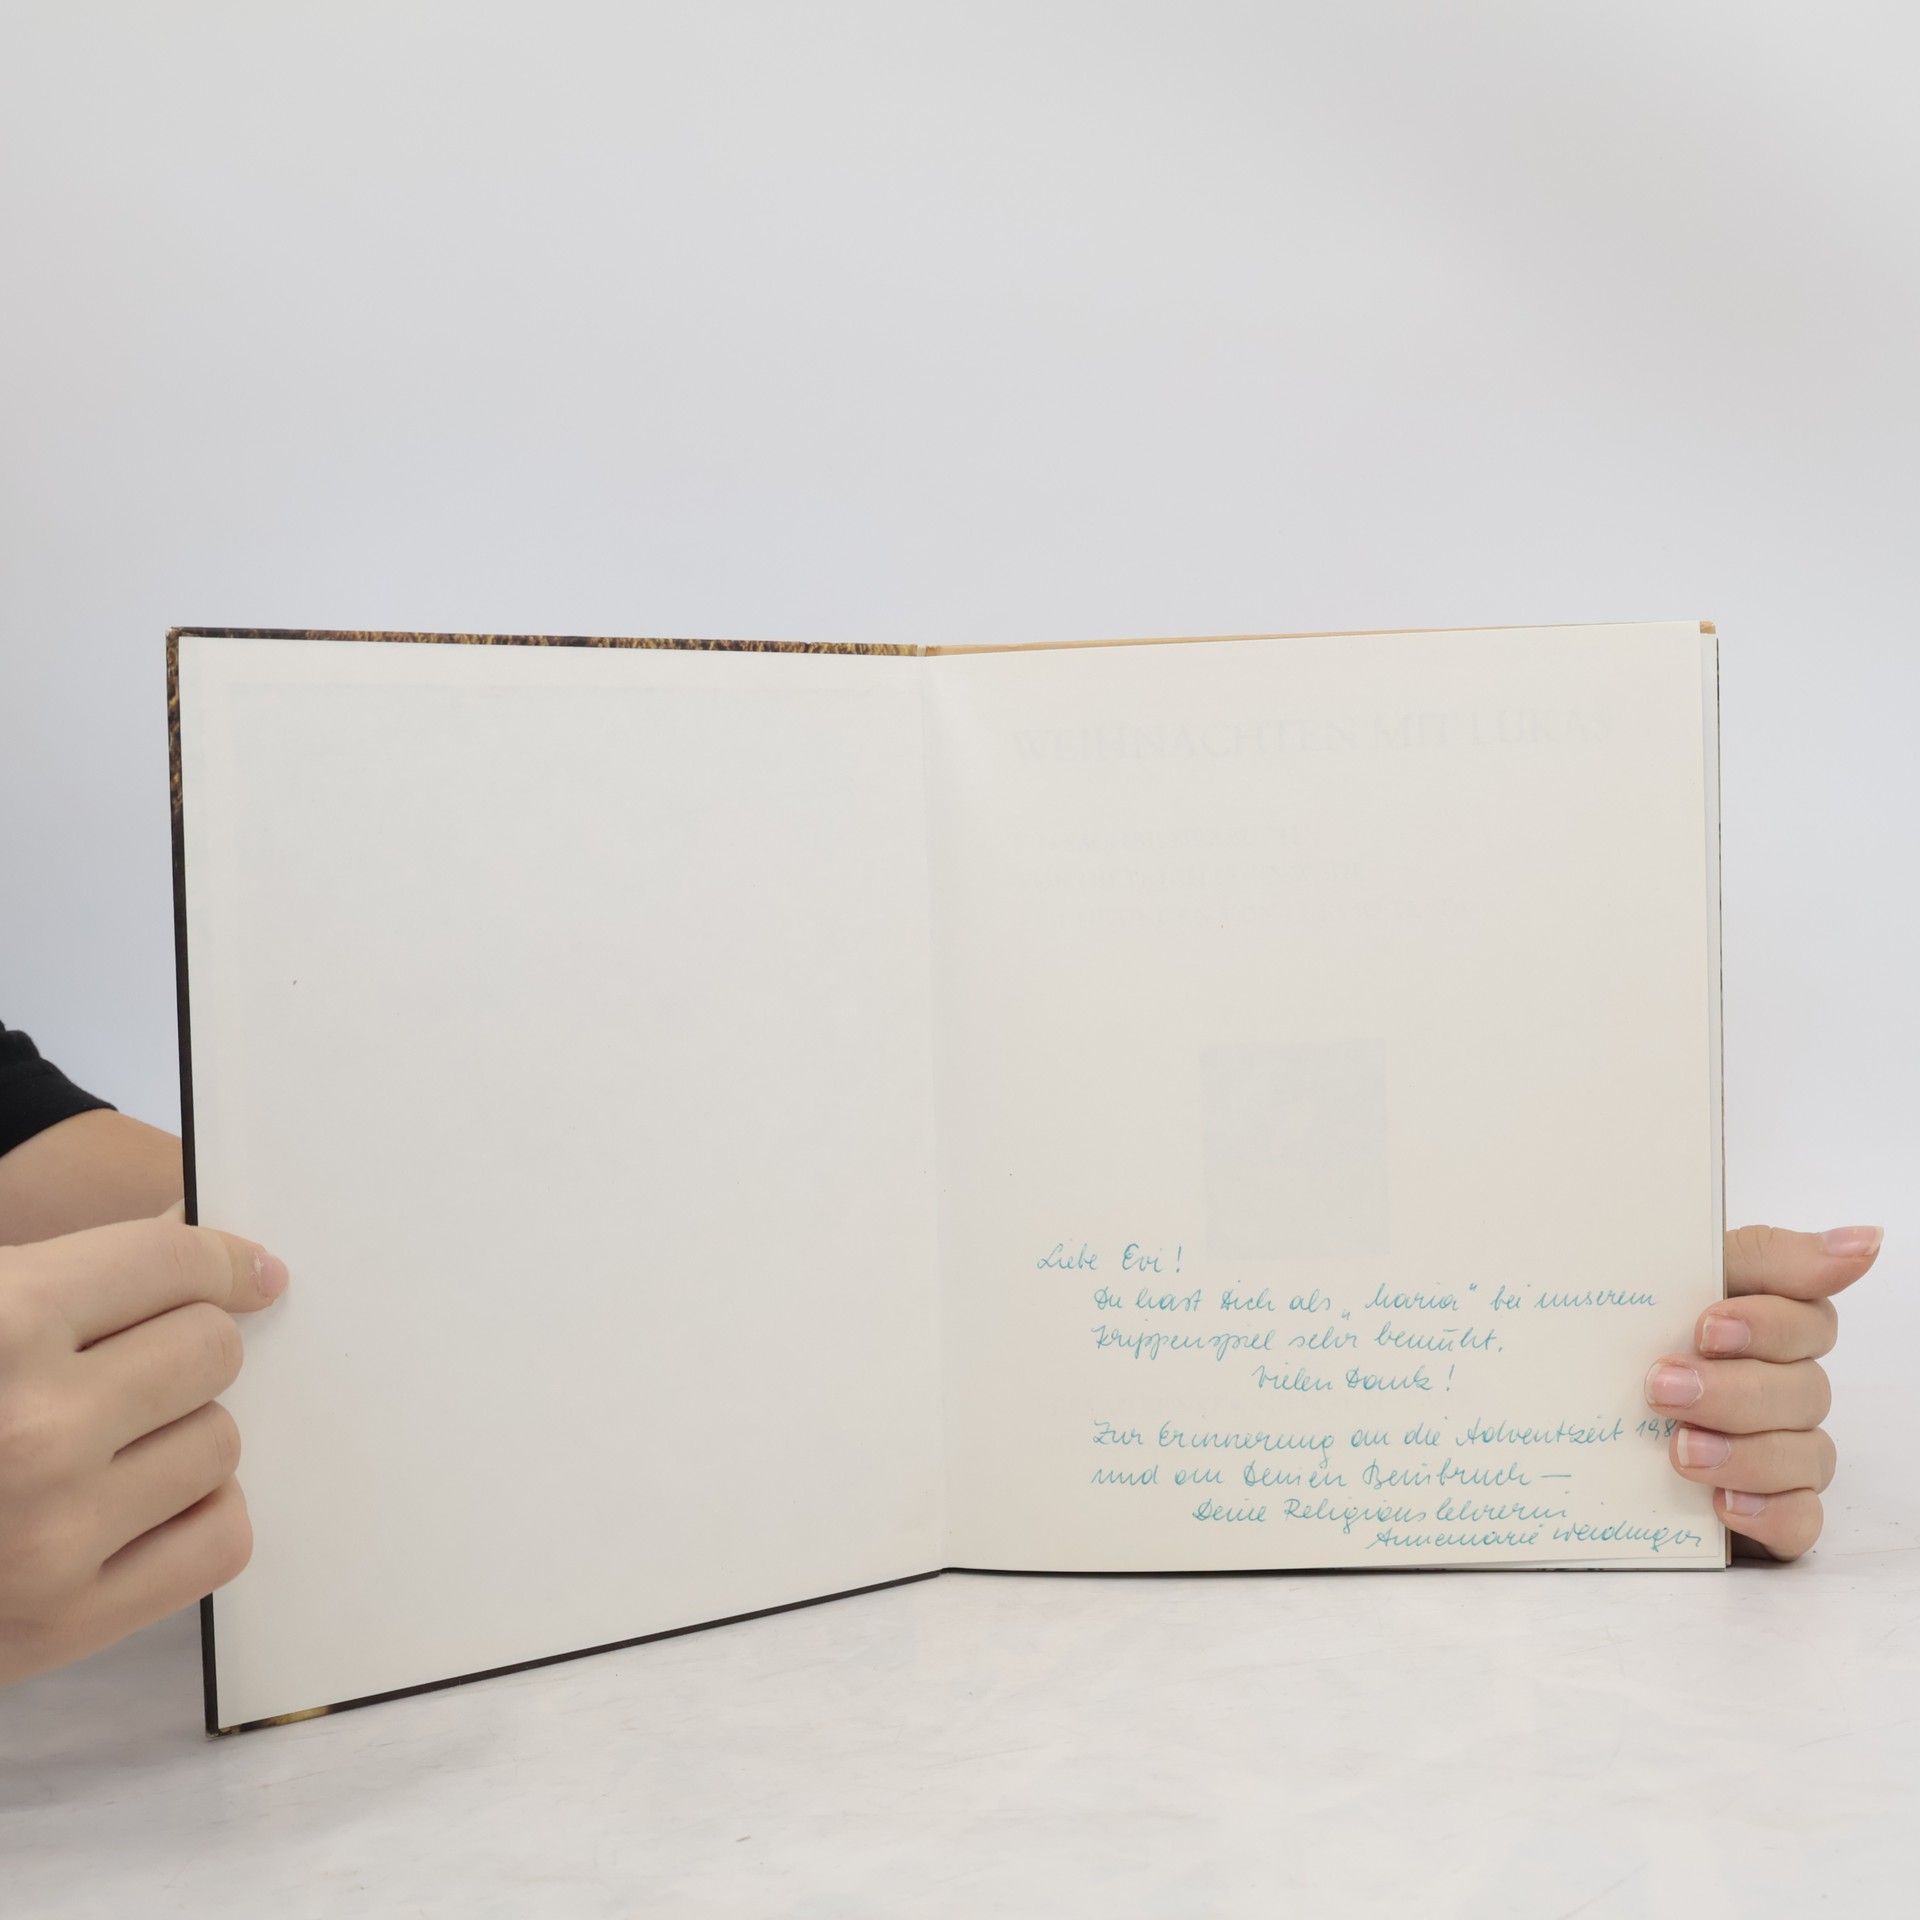 WEIHNACHTEN MIT LUKAS
Liebe Evi!
Du hast Dich als „Maria“ bei unserem
Krippenspiel sehr bemüht.
Vielen Dank!
Zur Erinnerung an die Adventzeit 198
und an Deinen Beinbruch —
Deine Religionslehrerin
Annemarie Weidinger